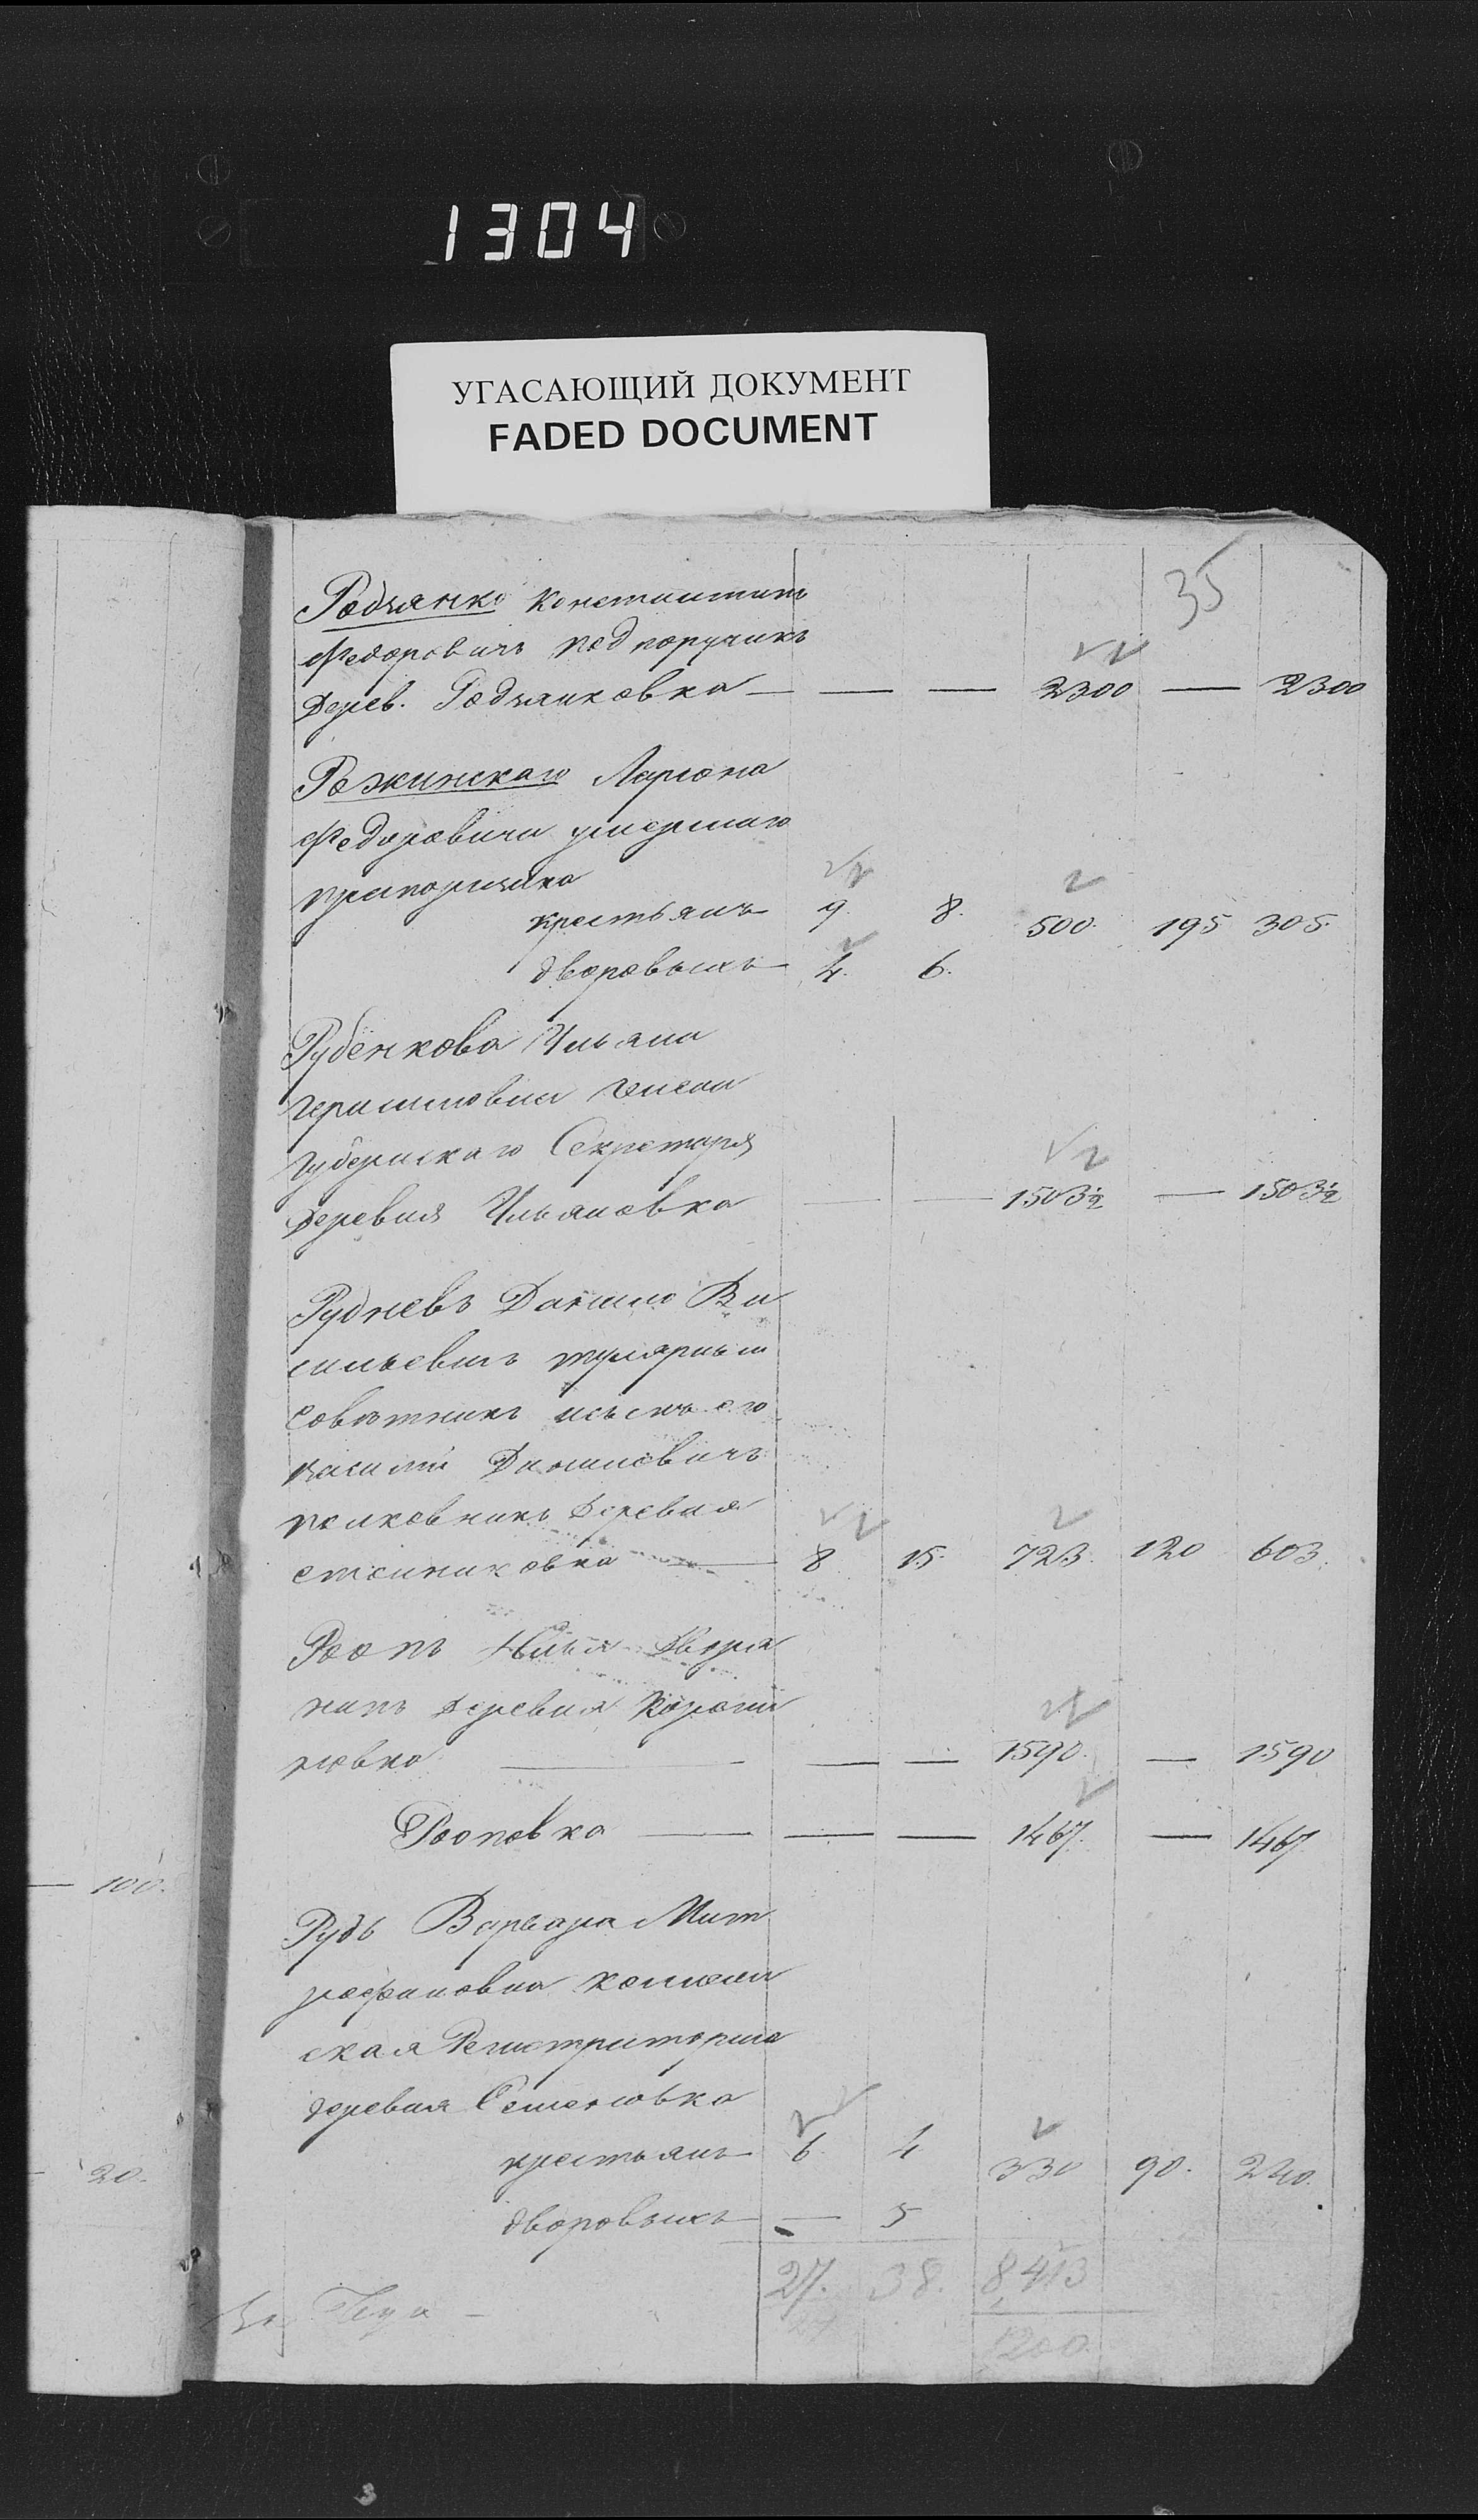 1304
УГАСАЮЩИЙ ДОКУМЕНТ
FADED DOCUMENT
35
Родзянко Константинъ
Федоровичъ подпоручикъ
Дерев. Родзянковка — — — 2300 — 2300
Рожинскаго Лариона
Федоровича умершаго
прапорщика
крестьянъ 9. 8. 500. 195 305.
дворовыхъ 4. 6.
Рубенкова Ульяна
Герасимовна жена
Губернскаго Секретаря
Деревня Ульяновка — — 1503½ — 1503½
Рудневъ Данило Ва
сильевичъ титулярный
Советникъ исынъ его
Василий Даниловичъ
полковникъ Деревня
— 8 15. 723. 120 603.
Роопъ Илья Дворя
нинъ Деревня
новка — — — 1590. — 1590
Рооповка — — — 1467. — 1467
Рудь Варвара Мит
рофановна коллеж
ская Регистраторша
деревня Семеновка
крестьянъ 6. 4 330 90. 240.
дворовыхъ — 5
27. 38. 8413
1200.
100.
20.